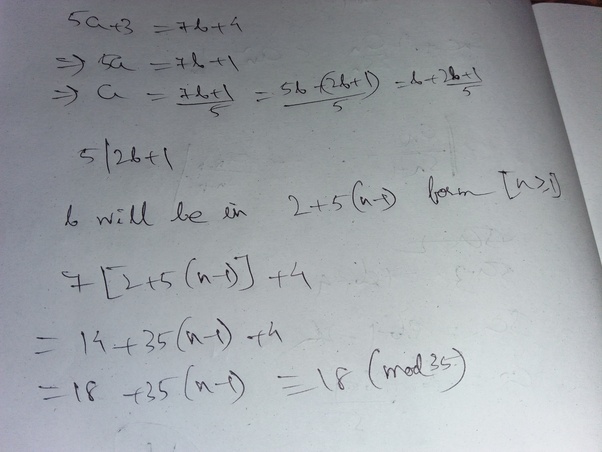 5a+3 = 7b+4
=> 5a = 7b+1
=> a = (7b+1)/5 = (5b-(2b+1))/5 = b+(2b+1)/5
5|2b+1
b will be in 2+5(n-1) form [n≥1]
7[2+5(n-1)]+4
= 14+35(n-1)+4
=18 +35(n-1) ≡18 (mod 35)